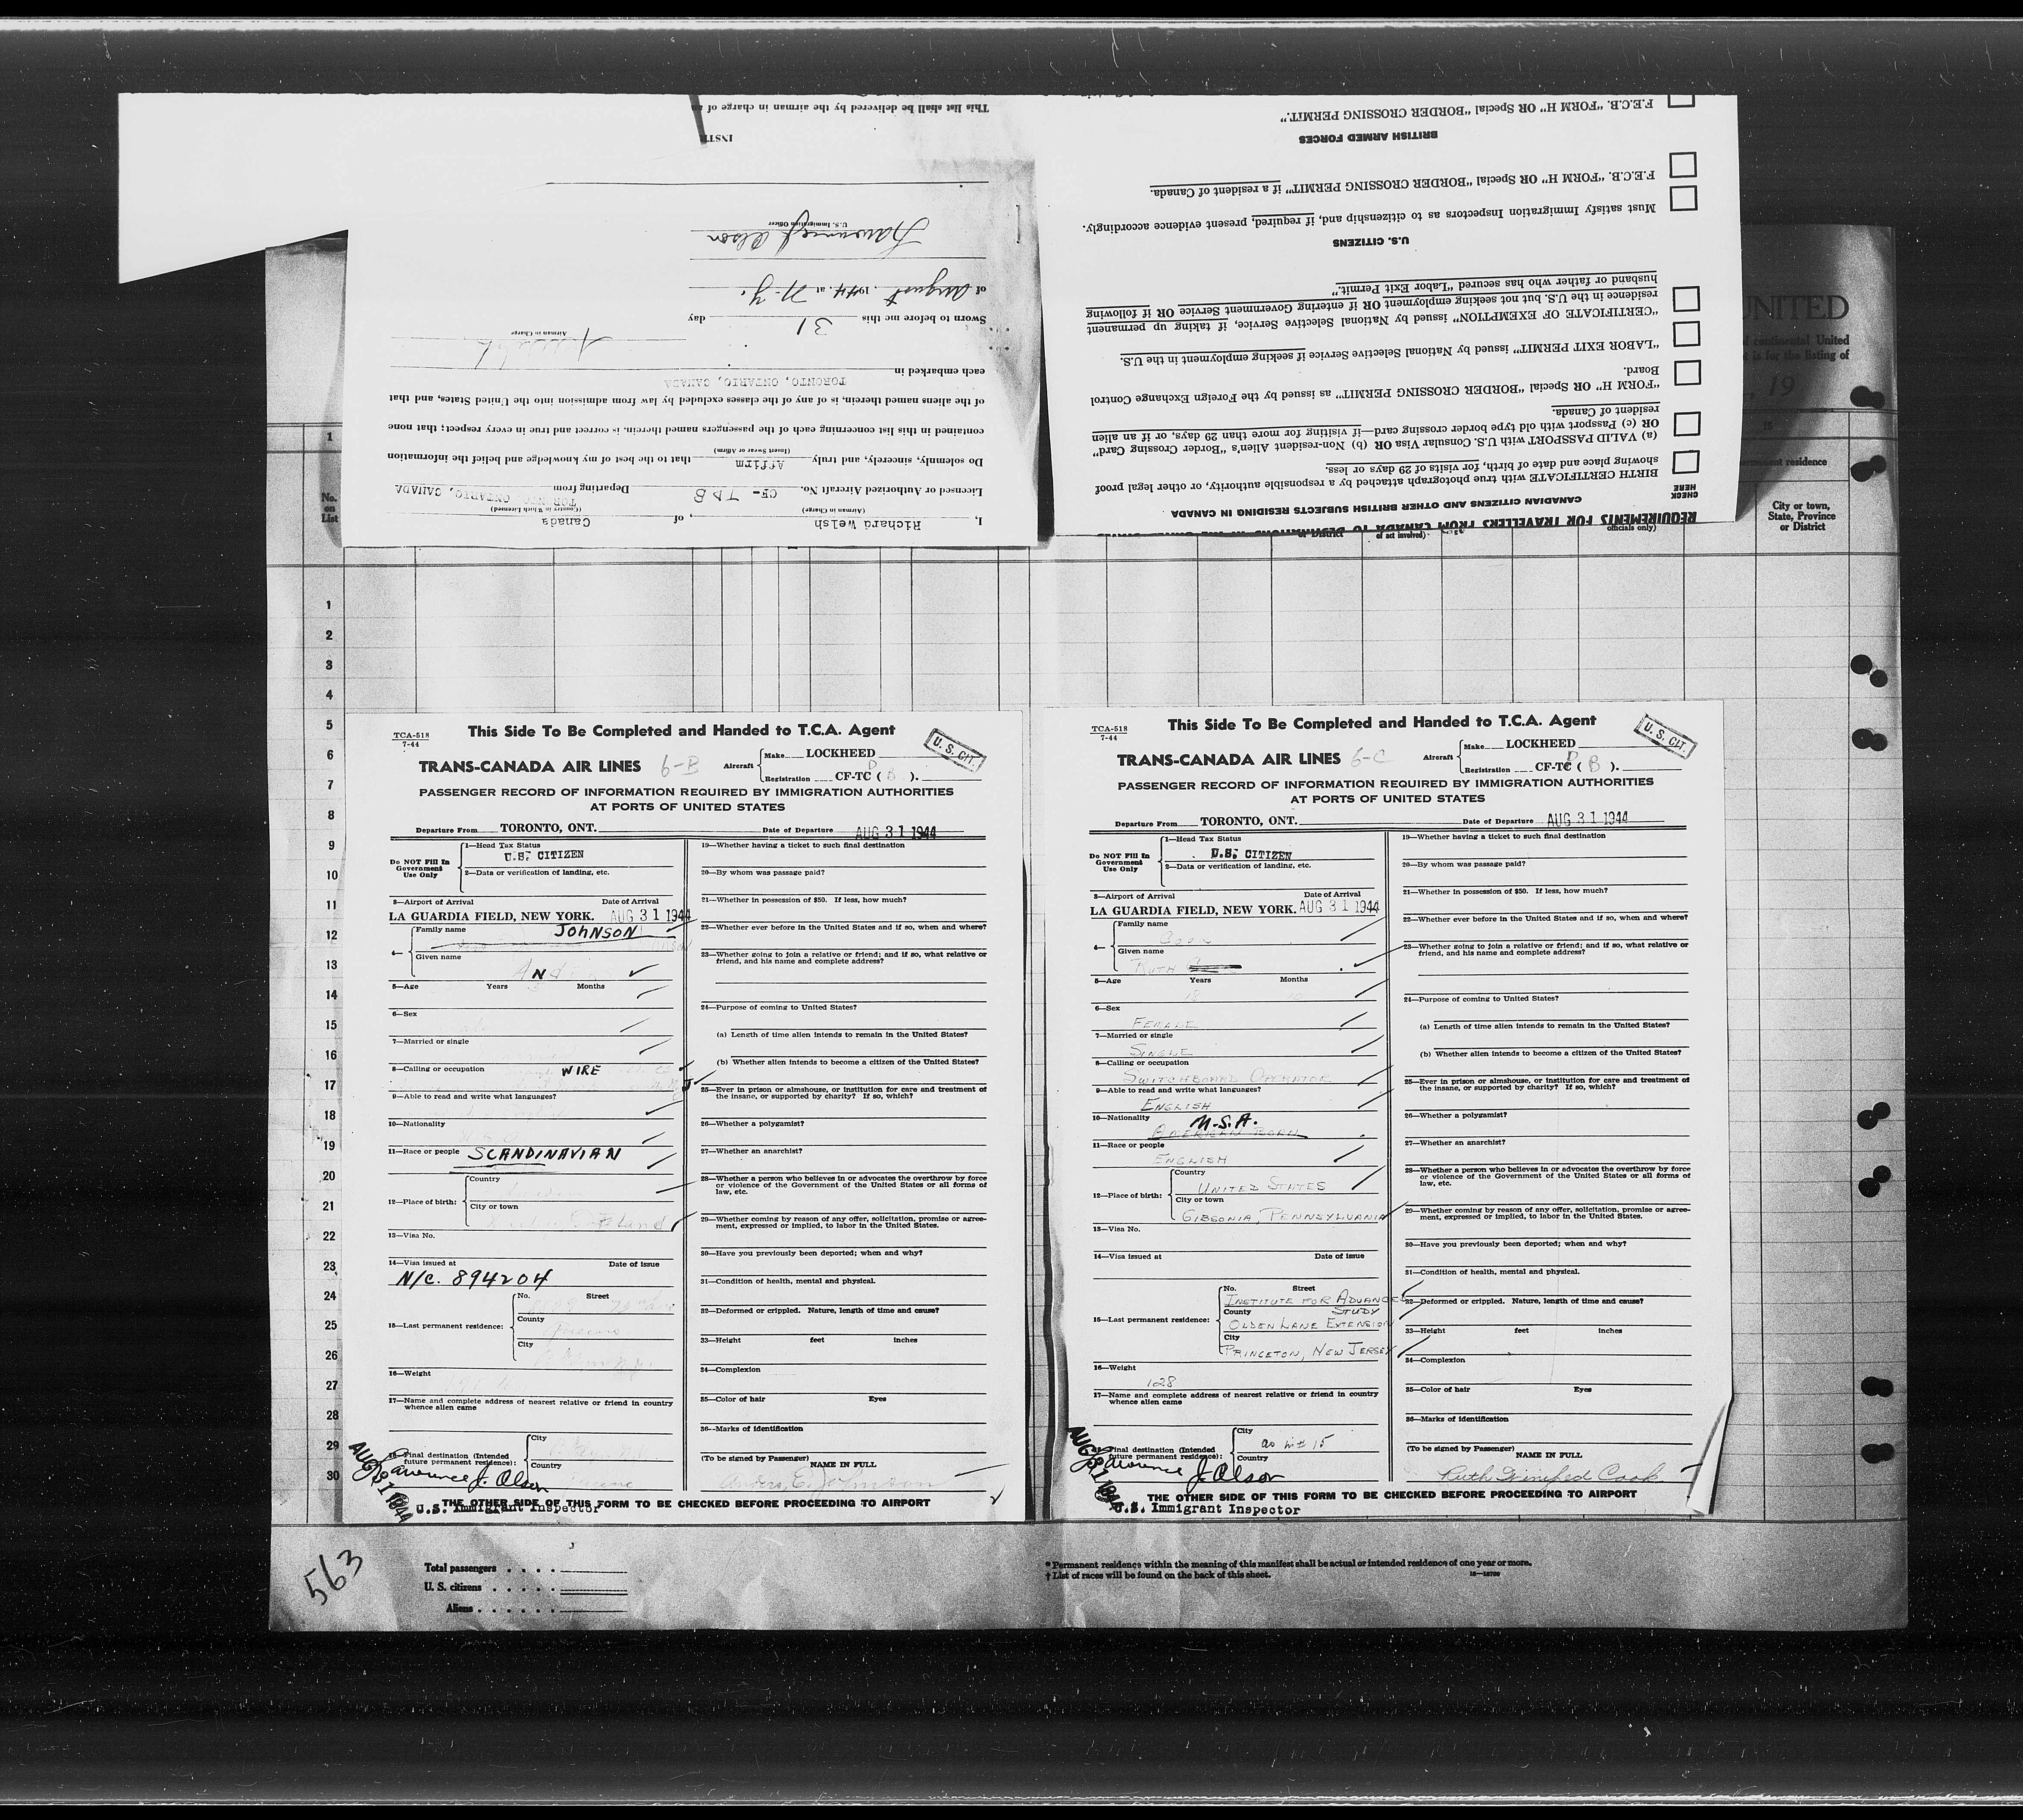 This list shall be delivered by the airman in charge of
U.S. Immigration Officer
Lawrence J. Olson
of August, 1944, at N.Y.
Sworn to before me this 31 day
Airman in Charge
each embarked in TORONTO, ONTARIO, CANADA
of the aliens named therein, is of any of the classes excluded by law from admission into the United States, and that
contained in this list concerning each of the passengers named therein, is correct and true in every respect; that none
Do solemnly, sincerely, and truly Affirm that to the best of my knowledge and belief the information
(Insert Swear or Affirm)
Licensed or Authorized Aircraft No. CF- TDB Departing from TORONTO, ONTARIO, CANADA
(Airman in Charge) (Country in Which Licensed)
I, Richard Welsh, of Canada
F.E.C.B. "FORM H" OR Special "BORDER CROSSING PERMIT."
BRITISH ARMED FORCES
F.E.C.B. "FORM H" OR Special "BORDER CROSSING PERMIT" if a resident of Canada.
Must satisfy Immigration Inspectors as to citizenship and, if required, present evidence accordingly.
U.S. CITIZENS
husband or father who has secured "Labor Exit Permit."
residence in the U.S. but not seeking employment OR if entering Government Service OR if following
"CERTIFICATE OF EXEMPTION" issued by National Selective Service, if taking up permanent
"LABOR EXIT PERMIT" issued by National Selective Service if seeking employment in the U.S.
Board.
"FORM H" OR Special "BORDER CROSSING PERMIT" as issued by the Foreign Exchange Control
resident of Canada.
OR (c) Passport with old type border crossing card—if visiting for more than 29 days, or if an alien
(a) VALID PASSPORT with U.S. Consular Visa OR (b) Non-resident Alien's "Border Crossing Card"
showing place and date of birth, for visits of 29 days or less.
BIRTH CERTIFICATE with true photograph attached by a responsible authority, or other legal proof
CHECK HERE
CANADIAN CITIZENS AND OTHER BRITISH SUBJECTS RESIDING IN CANADA
REQUIREMENTS FOR TRAVELLERS FROM CANADA TO DESTINATIONS IN THE UNITED STATES
UNITED
continental United
is for the listing of
19
residence
City or town,
State, Province
or District
No.
on
List
1
1
2
3
4
5
6
7
8
9
10
11
12
13
14
15
16
17
18
19
20
21
22
23
24
25
26
27
28
29
30
TCA-518
7-44
This Side To Be Completed and Handed to T.C.A. Agent
U. S. CIT.
TRANS-CANADA AIR LINES 6-B
Aircraft Make LOCKHEED
Registration CF-TC ( B ).
D
PASSENGER RECORD OF INFORMATION REQUIRED BY IMMIGRATION AUTHORITIES
AT PORTS OF UNITED STATES
Departure From TORONTO, ONT. Date of Departure AUG 31 1944
Do NOT Fill In
Government
Use Only
1—Head Tax Status
U.S. CITIZEN
2—Data or verification of landing, etc.
3—Airport of Arrival Date of Arrival
LA GUARDIA FIELD, NEW YORK. AUG 31 1944
4—
Family name JOHNSON
Given name
5—Age Years Months
6—Sex
7—Married or single
8—Calling or occupation WIRE
9—Able to read and write what languages?
10—Nationality
11—Race or people SCANDINAVIAN
12—Place of birth:
Country
City or town
13—Visa No.
14—Visa issued at Date of issue
N/C. 894204
15—Last permanent residence:
No. Street
County
City
16—Weight
17—Name and complete address of nearest relative or friend in country
whence alien came
18—Final destination (Intended
future permanent residence):
City
Country
19—Whether having a ticket to such final destination
20—By whom was passage paid?
21—Whether in possession of $50. If less, how much?
22—Whether ever before in the United States and if so, when and where?
23—Whether going to join a relative or friend; and if so, what relative or
friend, and his name and complete address?
24—Purpose of coming to United States?
(a) Length of time alien intends to remain in the United States?
(b) Whether alien intends to become a citizen of the United States?
25—Ever in prison or almshouse, or institution for care and treatment of
the insane, or supported by charity? If so, which?
26—Whether a polygamist?
27—Whether an anarchist?
28—Whether a person who believes in or advocates the overthrow by force
or violence of the Government of the United States or all forms of
law, etc.
29—Whether coming by reason of any offer, solicitation, promise or agree-
ment, expressed or implied, to labor in the United States.
30—Have you previously been deported; when and why?
31—Condition of health, mental and physical.
32—Deformed or crippled. Nature, length of time and cause?
33—Height feet inches
34—Complexion
35—Color of hair Eyes
36—Marks of identification
(To be signed by Passenger)
NAME IN FULL
AUG 31 1944
Lawrence J. Olson
THE OTHER SIDE OF THIS FORM TO BE CHECKED BEFORE PROCEEDING TO AIRPORT
U.S. Immigrant Inspector
TCA-518
7-44
This Side To Be Completed and Handed to T.C.A. Agent
U. S. CIT.
TRANS-CANADA AIR LINES 6-C
Aircraft Make LOCKHEED
Registration CF-TC ( B ).
D
PASSENGER RECORD OF INFORMATION REQUIRED BY IMMIGRATION AUTHORITIES
AT PORTS OF UNITED STATES
Departure From TORONTO, ONT. Date of Departure AUG 31 1944
Do NOT Fill In
Government
Use Only
1—Head Tax Status
U.S. CITIZEN
2—Data or verification of landing, etc.
3—Airport of Arrival Date of Arrival
LA GUARDIA FIELD, NEW YORK. AUG 31 1944
4—
Family name COOK
Given name RUTH
5—Age Years Months
6—Sex
FEMALE
7—Married or single
SINGLE
8—Calling or occupation
SWITCHBOARD OPERATOR
9—Able to read and write what languages?
ENGLISH
10—Nationality U.S.A.
AMERICAN BORN
11—Race or people
ENGLISH
12—Place of birth:
Country
UNITED STATES
City or town
GIBSONIA, PENNSYLVANIA
13—Visa No.
14—Visa issued at Date of issue
15—Last permanent residence:
No. Street
INSTITUTE FOR ADVANCED
County STUDY
OLDEN LANE EXTENSION
City
PRINCETON, NEW JERSEY
16—Weight
128
17—Name and complete address of nearest relative or friend in country
whence alien came
Final destination (Intended
future permanent residence):
City
as in # 15
Country
19—Whether having a ticket to such final destination
20—By whom was passage paid?
21—Whether in possession of $50. If less, how much?
22—Whether ever before in the United States and if so, when and where?
23—Whether going to join a relative or friend; and if so, what relative or
friend, and his name and complete address?
24—Purpose of coming to United States?
(a) Length of time alien intends to remain in the United States?
(b) Whether alien intends to become a citizen of the United States?
25—Ever in prison or almshouse, or institution for care and treatment of
the insane, or supported by charity? If so, which?
26—Whether a polygamist?
27—Whether an anarchist?
28—Whether a person who believes in or advocates the overthrow by force
or violence of the Government of the United States or all forms of
law, etc.
29—Whether coming by reason of any offer, solicitation, promise or agree-
ment, expressed or implied, to labor in the United States.
30—Have you previously been deported; when and why?
31—Condition of health, mental and physical.
32—Deformed or crippled. Nature, length of time and cause?
33—Height feet inches
34—Complexion
35—Color of hair Eyes
36—Marks of identification
(To be signed by Passenger)
NAME IN FULL
Ruth Winifred Cook
AUG 31 1944
Lawrence J. Olson
THE OTHER SIDE OF THIS FORM TO BE CHECKED BEFORE PROCEEDING TO AIRPORT
U.S. Immigrant Inspector
563
Total passengers
U. S. citizens
Aliens
* Permanent residence within the meaning of this manifest shall be actual or intended residence of one year or more.
† List of races will be found on the back of this sheet.